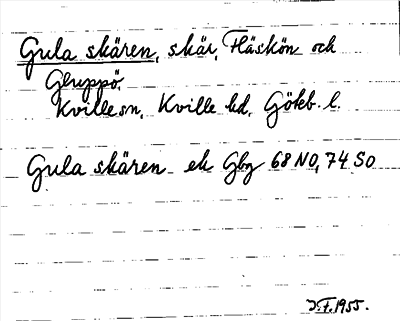 Gula skären, skär, Fläskön och
Gluppö,
Kville sn, Kville hd, Göteb. l.
Gula skären ek Gbg 68 NO, 74 SO
J.F. 1955.